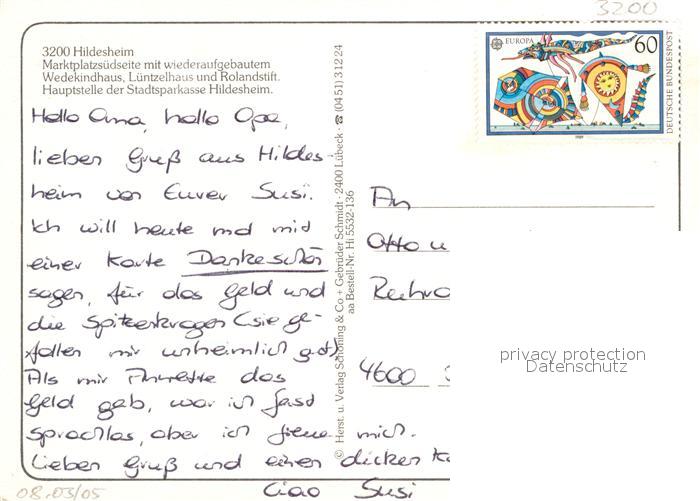 3200
3200 Hildesheim
Marktplatzsüdseite mit wiederaufgebautem
Wedekindhaus, Lüntzelhaus und Rolandstift.
Hauptstelle der Stadtsparkasse Hildesheim.
EUROPA 60
DEUTSCHE BUNDESPOST
1989
Hallo Oma, hallo Opa,
lieben Gruß aus Hildes-
heim von Eurer Susi.
Ich will heute mal mit
einer Karte Dankeschön
sagen, für das Geld und
die Spitzenkragen (sie ge-
fallen mir unheimlich gut)
Als mir Annette das
Geld gab, war ich fast
sprachlos, aber ich freue mich.
Lieben Gruß und einen dicken
Ciao Susi
© Herst. u. Verlag Schöning & Co + Gebrüder Schmidt · 2400 Lübeck · ☎ (04 51) 3 12 24
aa Bestell-Nr. Hi 5532-136
An
Otto u
4600
privacy protection
Datenschutz
08.03/05